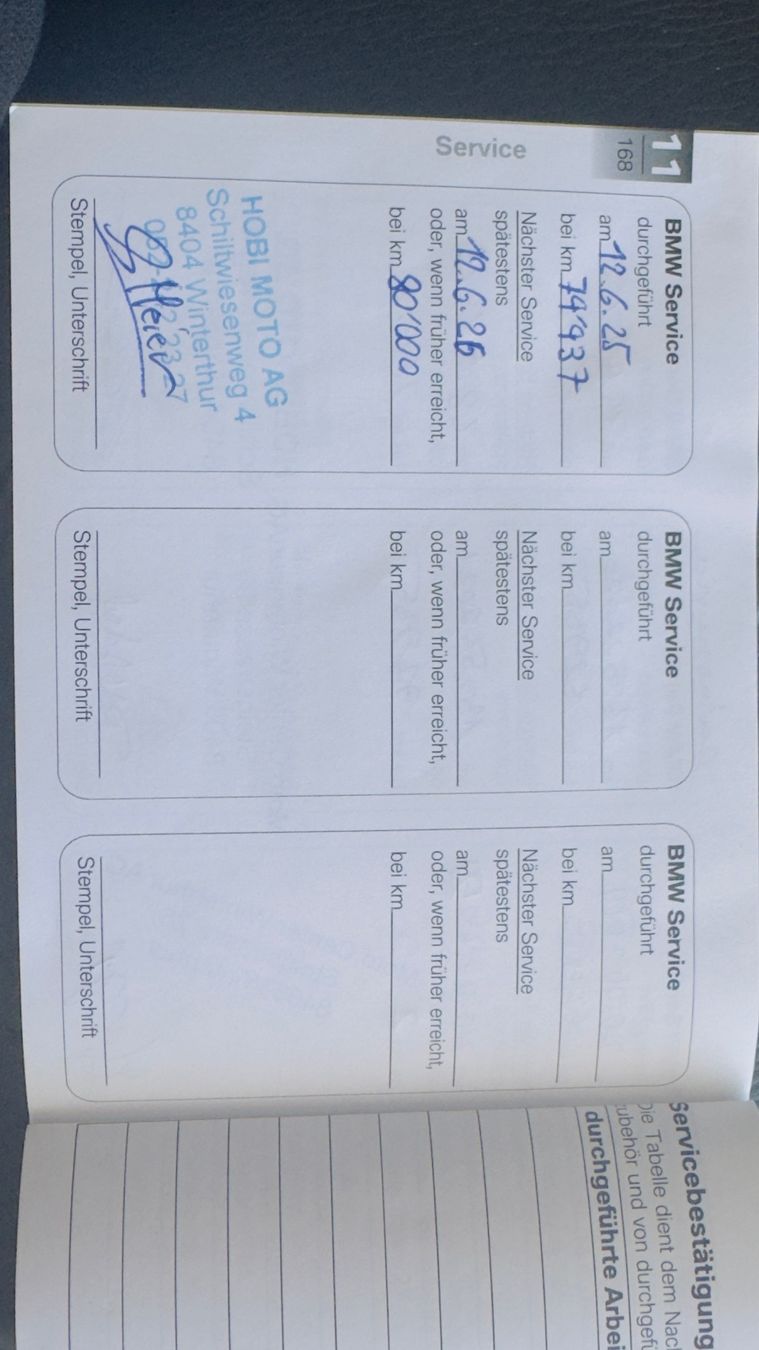 11
168
Service
BMW Service
durchgeführt
am 12.6.25
bei km 74'937
Nächster Service
spätestens
am 12.6.26
oder, wenn früher erreicht,
bei km 80'000
HOBI MOTO AG
Schiltwiesenweg 4
8404 Winterthur
Stempel, Unterschrift
BMW Service
durchgeführt
am
bei km
Nächster Service
spätestens
am
oder, wenn früher erreicht,
bei km
Stempel, Unterschrift
BMW Service
durchgeführt
am
bei km
Nächster Service
spätestens
am
oder, wenn früher erreicht,
bei km
Stempel, Unterschrift
Servicebestätigung
Die Tabelle dient dem Nac
ubehör und von durchgef
durchgeführte Arbei